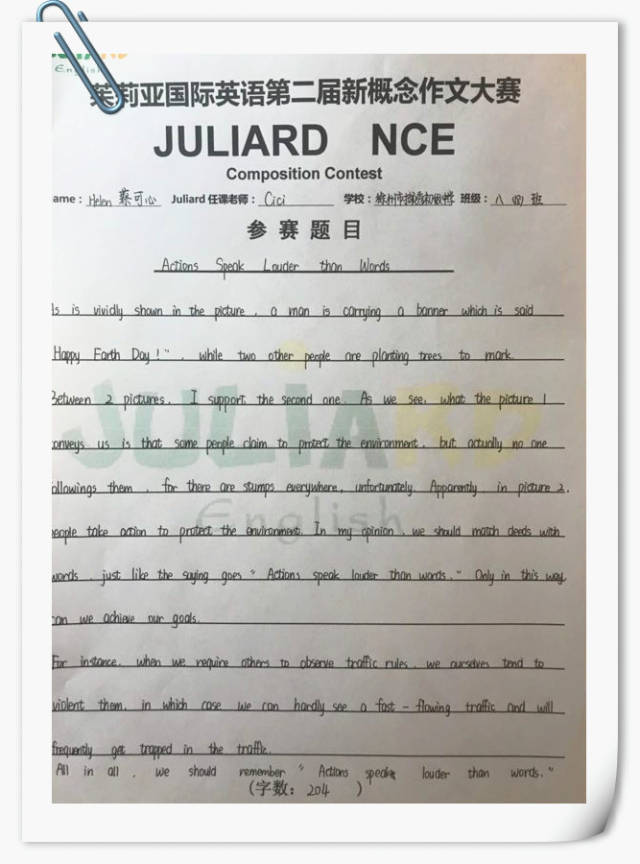 English
茱莉亚国际英语第二届新概念作文大赛
JULIARD NCE
Composition Contest
ame: Helen 蔡可心 Juliard 任课老师: Cici 学校: 班级: 八(四)班
参赛题目
Actions Speak Louder than Words
As is vividly shown in the picture, a man is carrying a banner which is said
"Happy Earth Day!", while two other people are planting trees to mark.
Between 2 pictures, I support the second one. As we see, what the picture 1
conveys us is that some people claim to protect the environment, but actually no one
followings them, for there are stumps everywhere, unfortunately. Apparently in picture 2,
people take action to protect the environment. In my opinion, we should match deeds with
words, just like the saying goes "Actions speak louder than words." Only in this way
can we achieve our goals.
For instance, when we require others to observe traffic rules, we ourselves tend to
violent them, in which case we can hardly see a fast-flowing traffic and will
frequently get trapped in the traffic.
All in all, we should remember "Actions speak louder than words."
(字数: 204 )
JULIARD
English